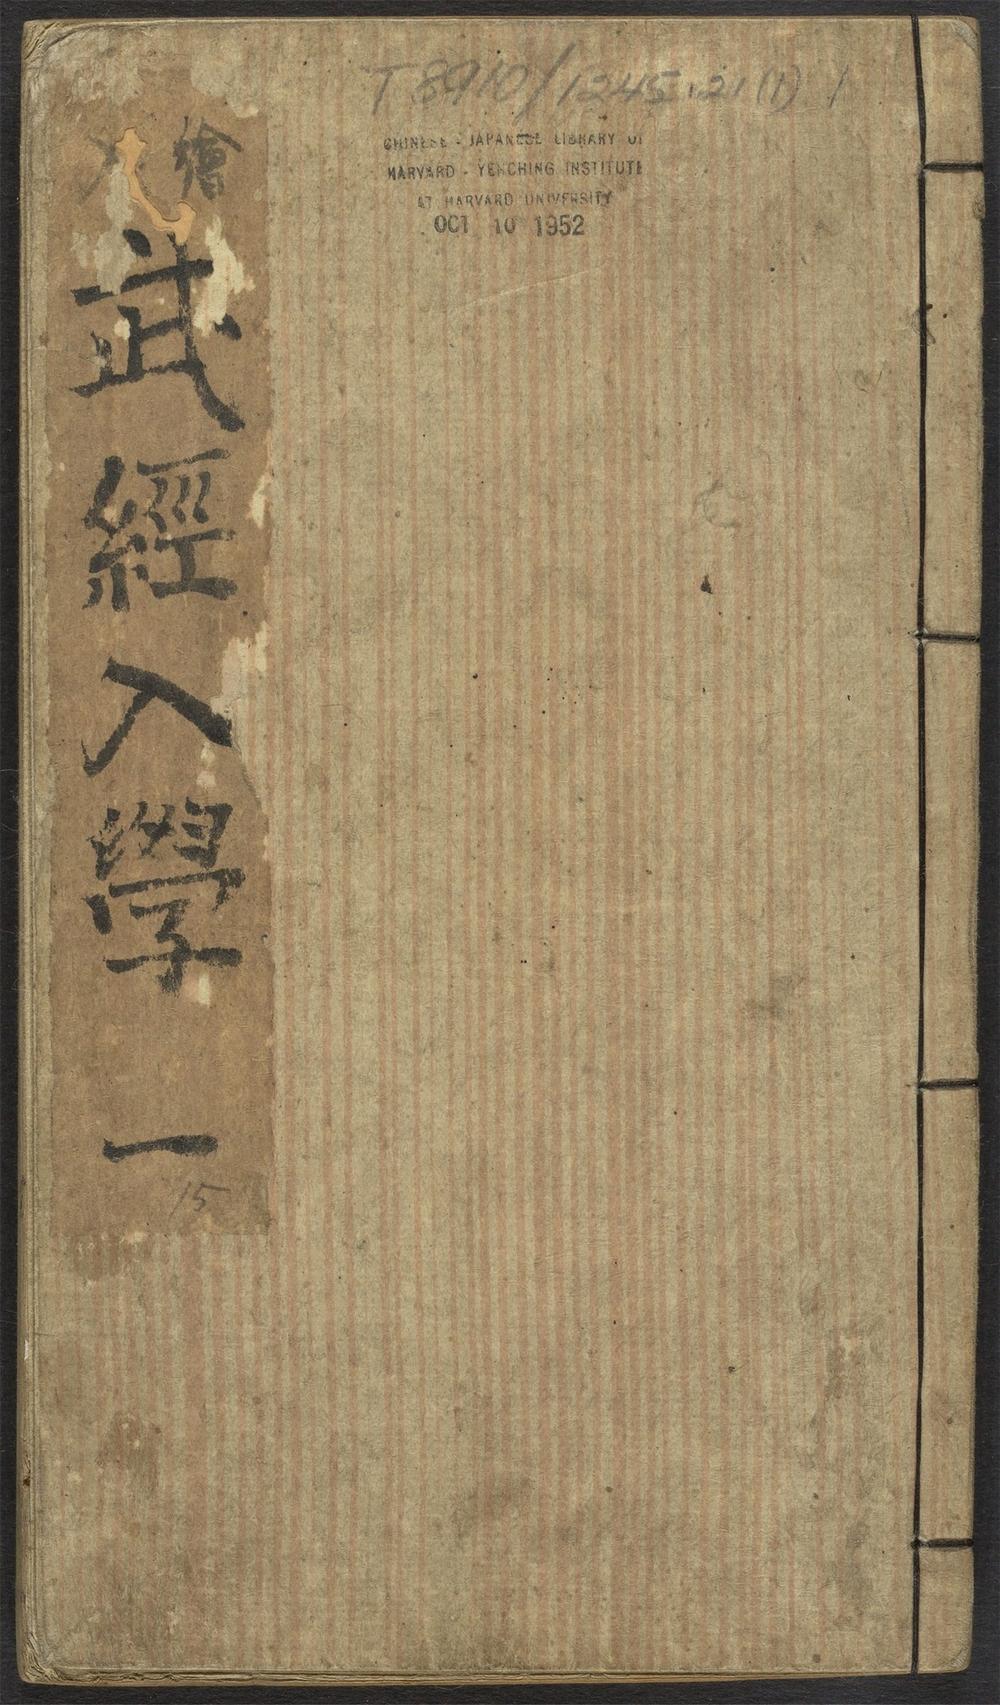 T 8910/1245.21(1) 1
CHINESE - JAPANESE LIBRARY OF
HARVARD - YENCHING INSTITUTE
AT HARVARD UNIVERSITY
OCT 10 1952
繪
武經入學 一
15